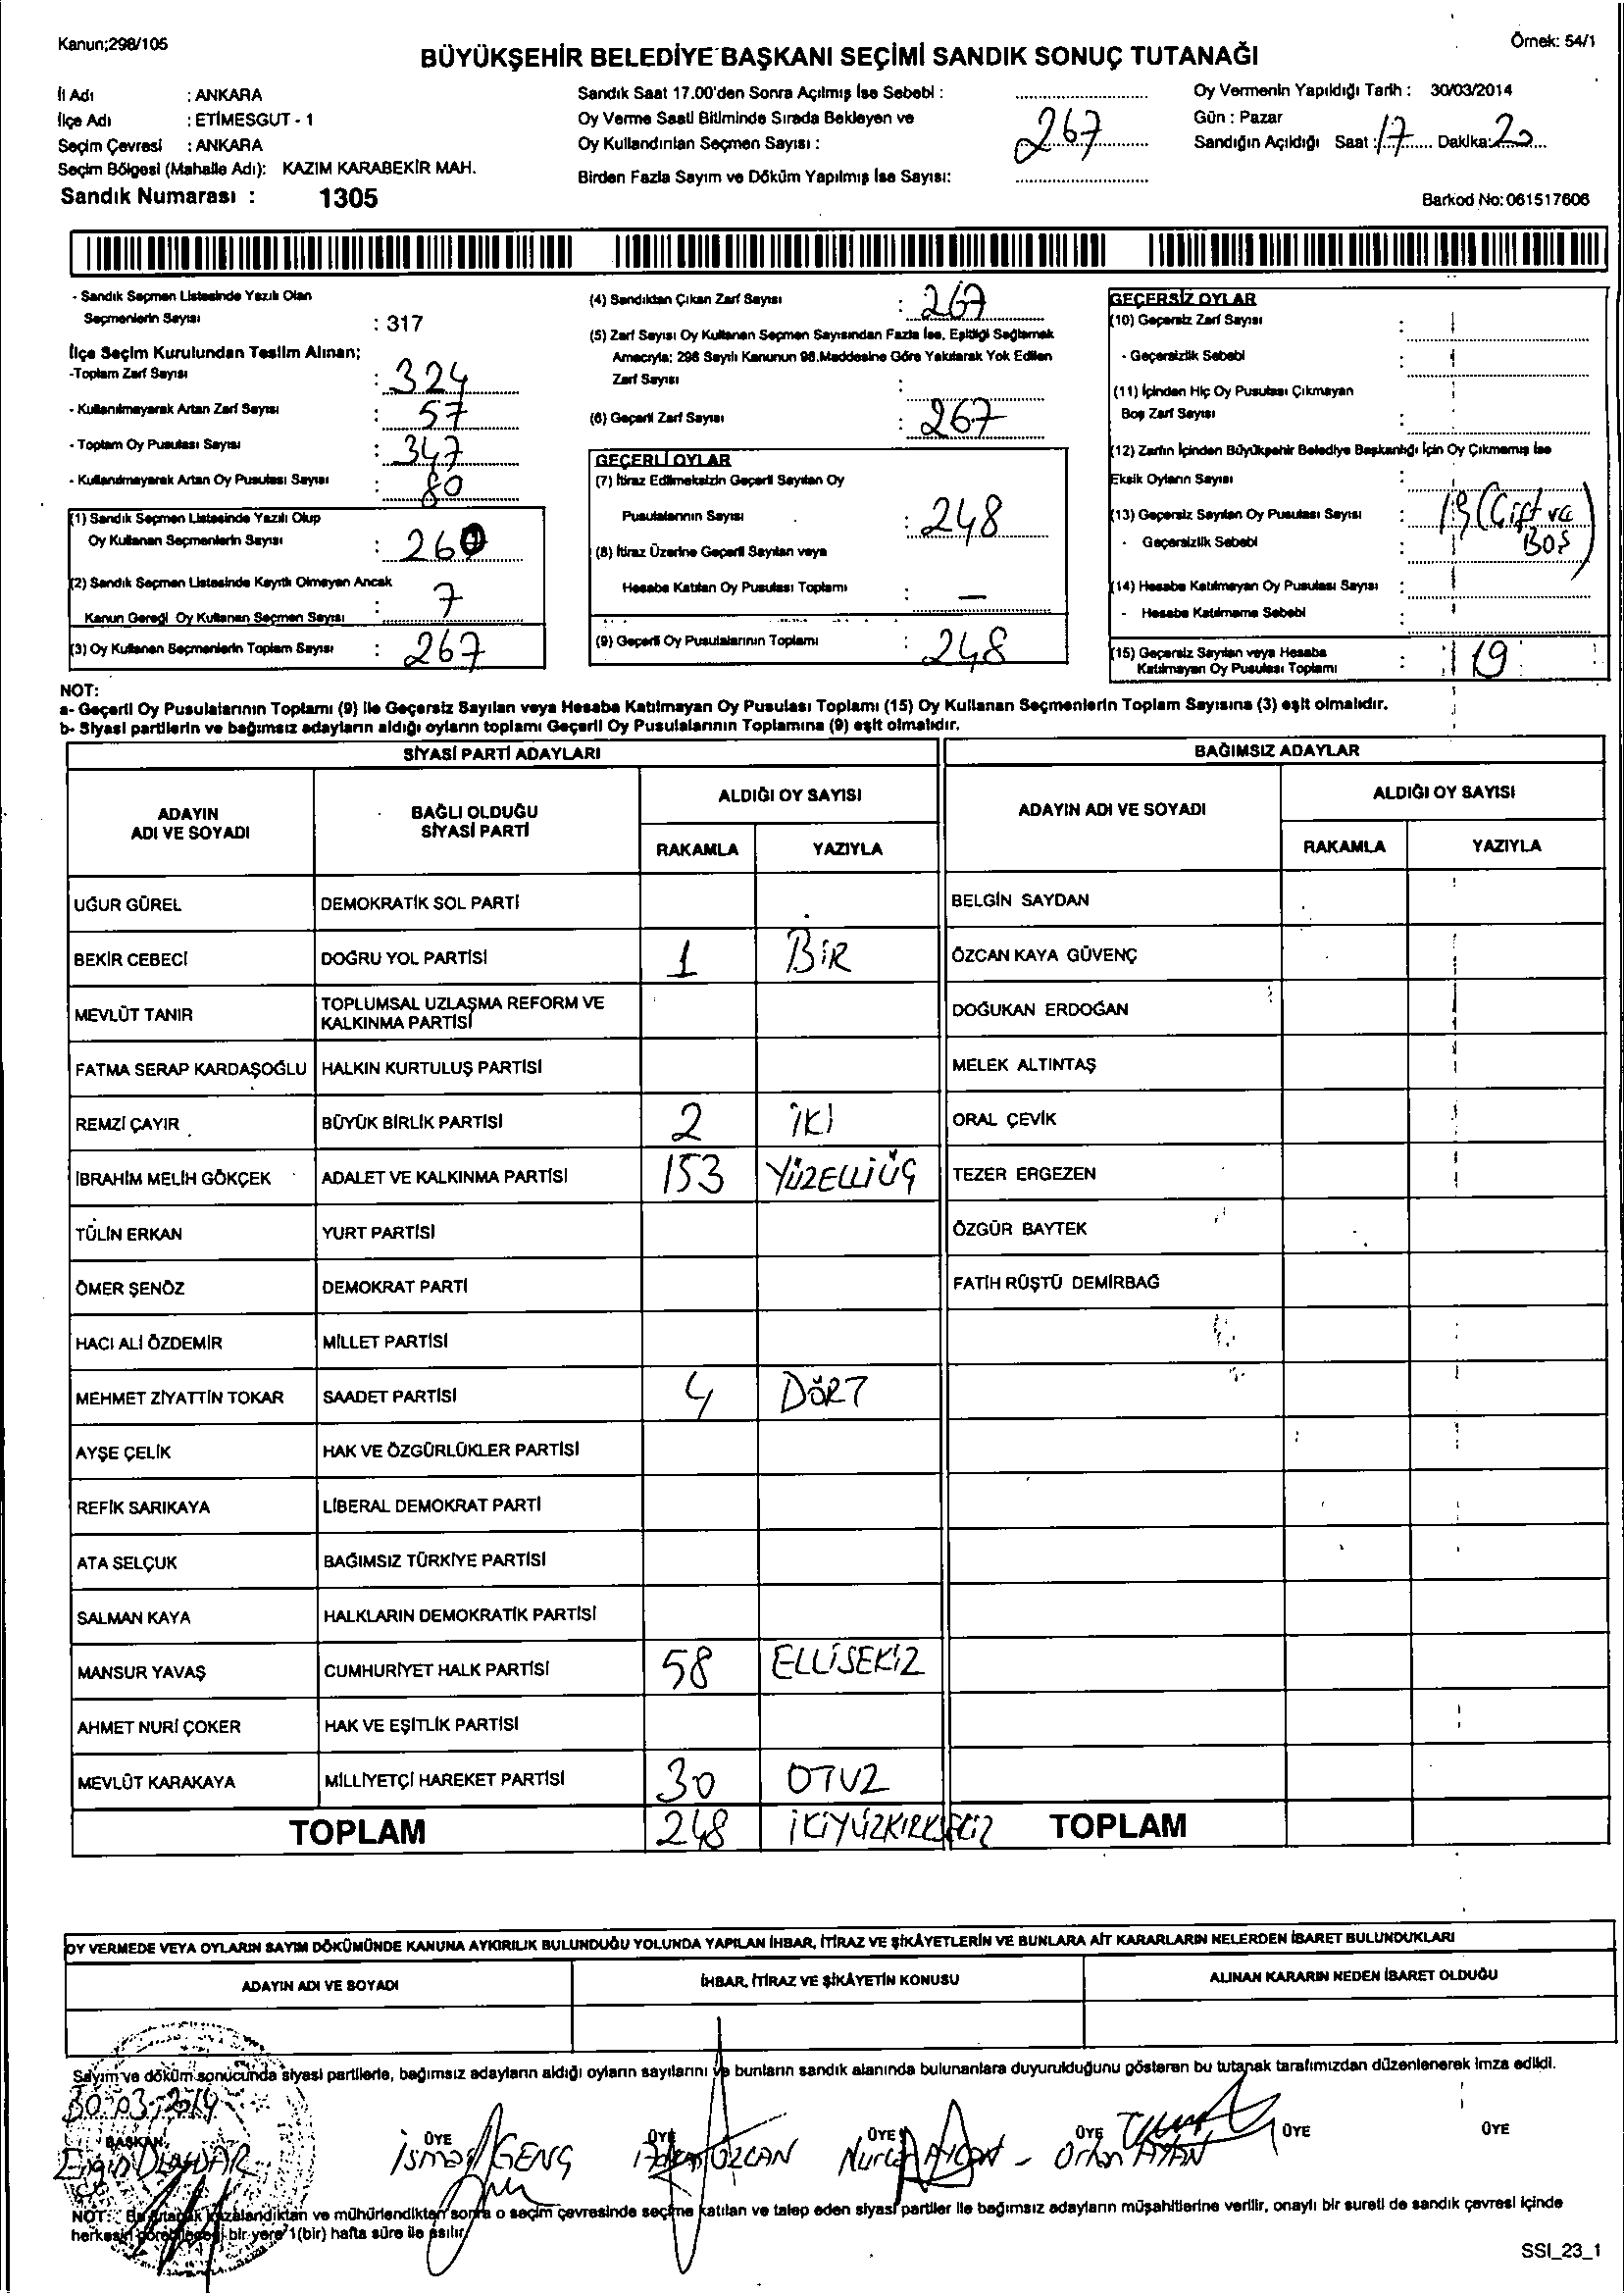 Kanun;298/105
Örnek: 54/1
BÜYÜKŞEHİR BELEDİYE BAŞKANI SEÇİMİ SANDIK SONUÇ TUTANAĞI
İl Adı : ANKARA
İlçe Adı : ETİMESGUT - 1
Seçim Çevresi : ANKARA
Seçim Bölgesi (Mahalle Adı): KAZIM KARABEKİR MAH.
Sandık Numarası : 1305
Sandık Saat 17.00'den Sonra Açılmış İse Sebebi :
Oy Verme Saati Bitiminde Sırada Bekleyen ve
Oy Kullandırılan Seçmen Sayısı : 267
Birden Fazla Sayım ve Döküm Yapılmış İse Sayısı:
Oy Vermenin Yapıldığı Tarih : 30/03/2014
Gün : Pazar
Sandığın Açıldığı Saat : 17 Dakika: 20
Barkod No: 061517606
- Sandık Seçmen Listesinde Yazılı Olan
Seçmenlerin Sayısı : 317
İlçe Seçim Kurulundan Teslim Alınan;
-Toplam Zarf Sayısı : 324
- Kullanılmayarak Artan Zarf Sayısı : 57
- Toplam Oy Pusulası Sayısı : 347
- Kullanılmayarak Artan Oy Pusulası Sayısı : 80
(1) Sandık Seçmen Listesinde Yazılı Olup
Oy Kullanan Seçmenlerin Sayısı : 260
(2) Sandık Seçmen Listesinde Kayıtlı Olmayan Ancak
Kanun Gereği Oy Kullanan Seçmen Sayısı : 7
(3) Oy Kullanan Seçmenlerin Toplam Sayısı : 267
(4) Sandıktan Çıkan Zarf Sayısı : 267
(5) Zarf Sayısı Oy Kullanan Seçmen Sayısından Fazla İse, Eşitliği Sağlamak
Amacıyla; 298 Sayılı Kanunun 98.Maddesine Göre Yakılarak Yok Edilen
Zarf Sayısı :
(6) Geçerli Zarf Sayısı : 267
GEÇERLİ OYLAR
(7) İtiraz Edilmeksizin Geçerli Sayılan Oy
Pusulalarının Sayısı : 248
(8) İtiraz Üzerine Geçerli Sayılan veya
Hesaba Katılan Oy Pusulası Toplamı : —
(9) Geçerli Oy Pusulalarının Toplamı : 248
GEÇERSİZ OYLAR
(10) Geçersiz Zarf Sayısı :
- Geçersizlik Sebebi :
(11) İçinden Hiç Oy Pusulası Çıkmayan
Boş Zarf Sayısı :
(12) Zarfın İçinden Büyükşehir Belediye Başkanlığı İçin Oy Çıkmamış İse
Eksik Oyların Sayısı :
(13) Geçersiz Sayılan Oy Pusulası Sayısı : 19 (Çift ve
- Geçersizlik Sebebi : BOŞ)
(14) Hesaba Katılmayan Oy Pusulası Sayısı :
- Hesaba Katılmama Sebebi :
(15) Geçersiz Sayılan veya Hesaba
Katılmayan Oy Pusulası Toplamı : 19
NOT:
a- Geçerli Oy Pusulalarının Toplamı (9) ile Geçersiz Sayılan veya Hesaba Katılmayan Oy Pusulası Toplamı (15) Oy Kullanan Seçmenlerin Toplam Sayısına (3) eşit olmalıdır.
b- Siyasi partilerin ve bağımsız adayların aldığı oyların toplamı Geçerli Oy Pusulalarının Toplamına (9) eşit olmalıdır.
SİYASİ PARTİ ADAYLARI
BAĞIMSIZ ADAYLAR
ADAYIN
ADI VE SOYADI
BAĞLI OLDUĞU
SİYASİ PARTİ
ALDIĞI OY SAYISI
RAKAMLA YAZIYLA
ADAYIN ADI VE SOYADI
ALDIĞI OY SAYISI
RAKAMLA YAZIYLA
UĞUR GÜREL DEMOKRATİK SOL PARTİ BELGİN SAYDAN
BEKİR CEBECİ DOĞRU YOL PARTİSİ 1 BİR ÖZCAN KAYA GÜVENÇ
MEVLÜT TANIR TOPLUMSAL UZLAŞMA REFORM VE
KALKINMA PARTİSİ DOĞUKAN ERDOĞAN
FATMA SERAP KARDAŞOĞLU HALKIN KURTULUŞ PARTİSİ MELEK ALTINTAŞ
REMZİ ÇAYIR BÜYÜK BİRLİK PARTİSİ 2 İKİ ORAL ÇEVİK
İBRAHİM MELİH GÖKÇEK ADALET VE KALKINMA PARTİSİ 153 YÜZELLİÜÇ TEZER ERGEZEN
TÜLİN ERKAN YURT PARTİSİ ÖZGÜR BAYTEK
ÖMER ŞENÖZ DEMOKRAT PARTİ FATİH RÜŞTÜ DEMİRBAĞ
HACI ALİ ÖZDEMİR MİLLET PARTİSİ
MEHMET ZİYATTİN TOKAR SAADET PARTİSİ 4 DÖRT
AYŞE ÇELİK HAK VE ÖZGÜRLÜKLER PARTİSİ
REFİK SARIKAYA LİBERAL DEMOKRAT PARTİ
ATA SELÇUK BAĞIMSIZ TÜRKİYE PARTİSİ
SALMAN KAYA HALKLARIN DEMOKRATİK PARTİSİ
MANSUR YAVAŞ CUMHURİYET HALK PARTİSİ 58 ELLİSEKİZ
AHMET NURİ ÇOKER HAK VE EŞİTLİK PARTİSİ
MEVLÜT KARAKAYA MİLLİYETÇİ HAREKET PARTİSİ 30 OTUZ
TOPLAM 248 İKİYÜZKIRKSEKİZ TOPLAM
OY VERMEDE VEYA OYLARIN SAYIM DÖKÜMÜNDE KANUNA AYKIRILIK BULUNDUĞU YOLUNDA YAPILAN İHBAR, İTİRAZ VE ŞİKÂYETLERİN VE BUNLARA AİT KARARLARIN NELERDEN İBARET BULUNDUKLARI
ADAYIN ADI VE SOYADI İHBAR, İTİRAZ VE ŞİKÂYETİN KONUSU ALINAN KARARIN NEDEN İBARET OLDUĞU
Sayım ve döküm sonucunda siyasi partilerle, bağımsız adayların aldığı oyların sayılarını ve bunların sandık alanında bulunanlara duyurulduğunu gösteren bu tutanak tarafımızdan düzenlenerek imza edildi.
30.03.2014
BAŞKAN ÜYE ÜYE ÜYE ÜYE ÜYE ÜYE
Engin İsmail GENÇ ÖZCAN Orhan
NOT: Bu tutanak imzalandıktan ve mühürlendikten sonra o seçim çevresinde seçime katılan ve talep eden siyasi partiler ile bağımsız adayların müşahitlerine verilir, onaylı bir sureti de sandık çevresi içinde
herkesin görebileceği bir yere 1(bir) hafta süre ile asılır.
SSI_23_1